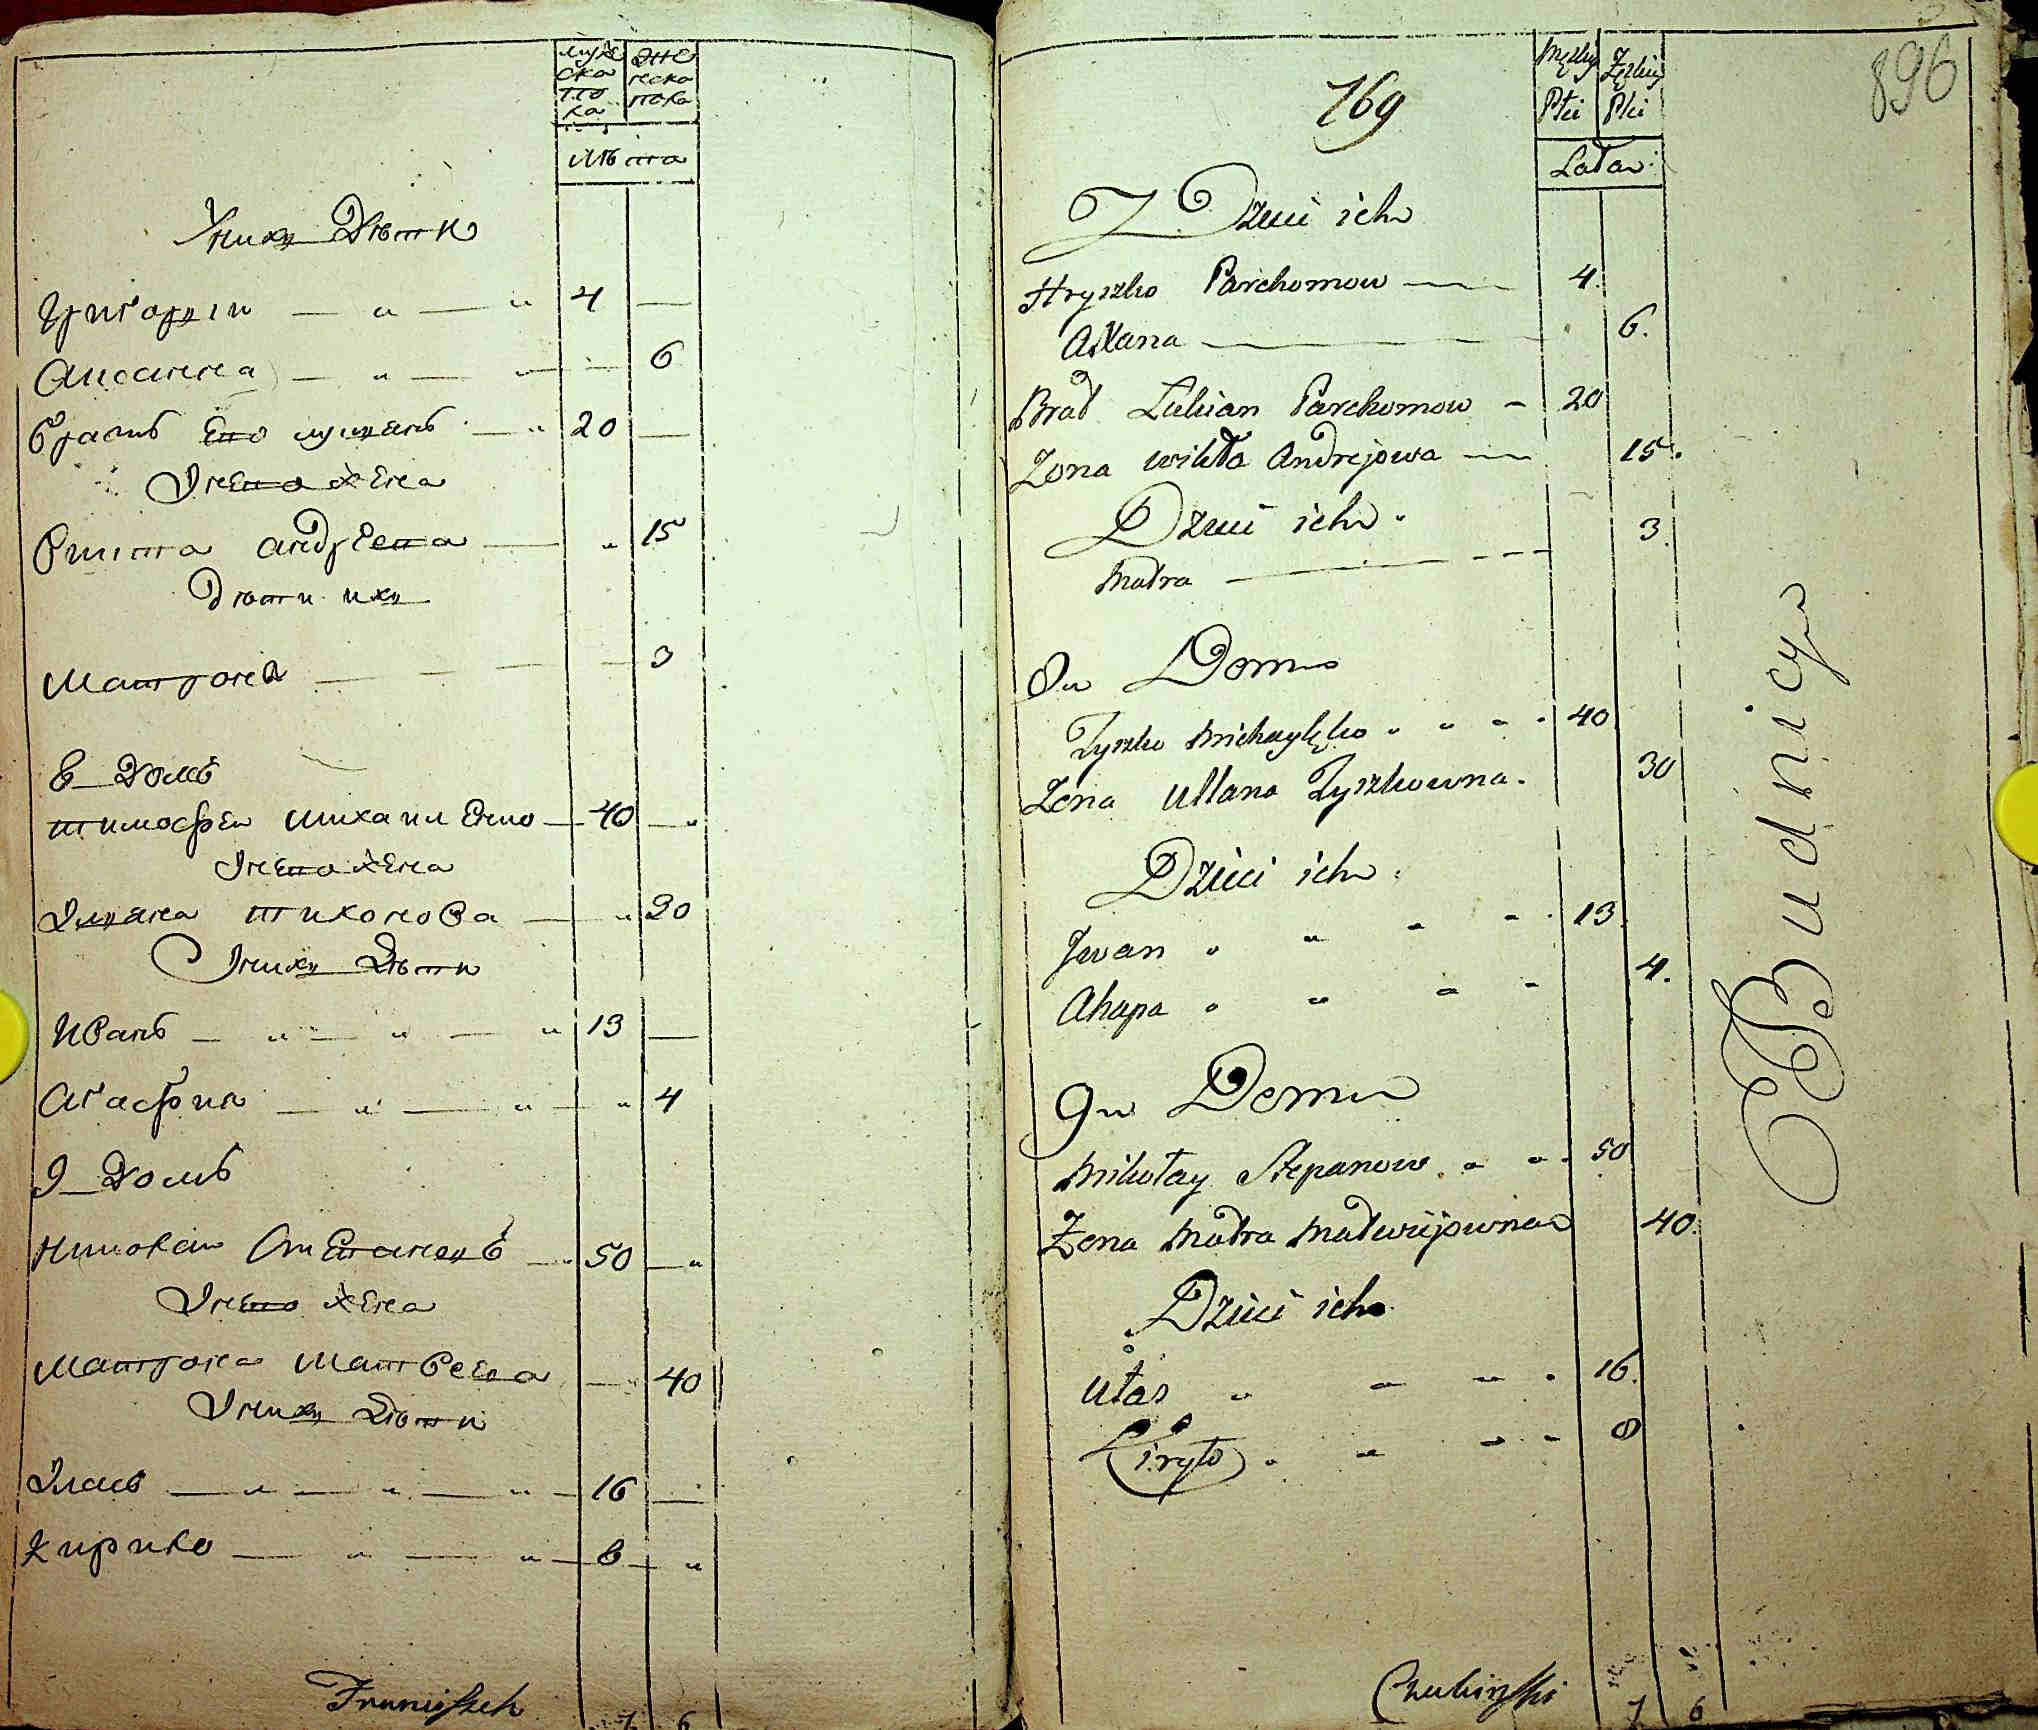 муже
ска
по
ла
же
нска
пола
лѣта
У них дѣти
Григорiи 4
Аксанна 6
братъ Его лукянъ 20
У него жена
Викта андреева 15
дѣти их
матрона 3
8 домъ
тимофеи михаиленко 40
У него жена
Уляна тихонова 30
У них дѣти
Иванъ 13
Агафия 4
9 домъ
Николаи Степановъ 50
У него жена
матрона матвеева 40
У них дѣти
Уласъ 16
Кирило 8
Franciszek
7 6
896
769
Męzkiy Płci
Żęzkiy Płci
Lata
Z Dzieci ich
Hryszko Parchomow 4.
Axana 6.
Brat Łukian Parchomow 20
Zona wikta Andrejowa 15.
Dzieci ich
Matra 3.
8u Domu
Tyszko Michayłęko 40
Zona Ullana Tyszkowna 30
Dzieci ich
Jwan 13.
Ahapa 4.
9u Domu
Mikołay Stepanow 50
Zona Matra Matwiejowna 40.
Dzieci ich
Ułas 16.
Kiryło 8
Czubinski
7 6
Budnicy